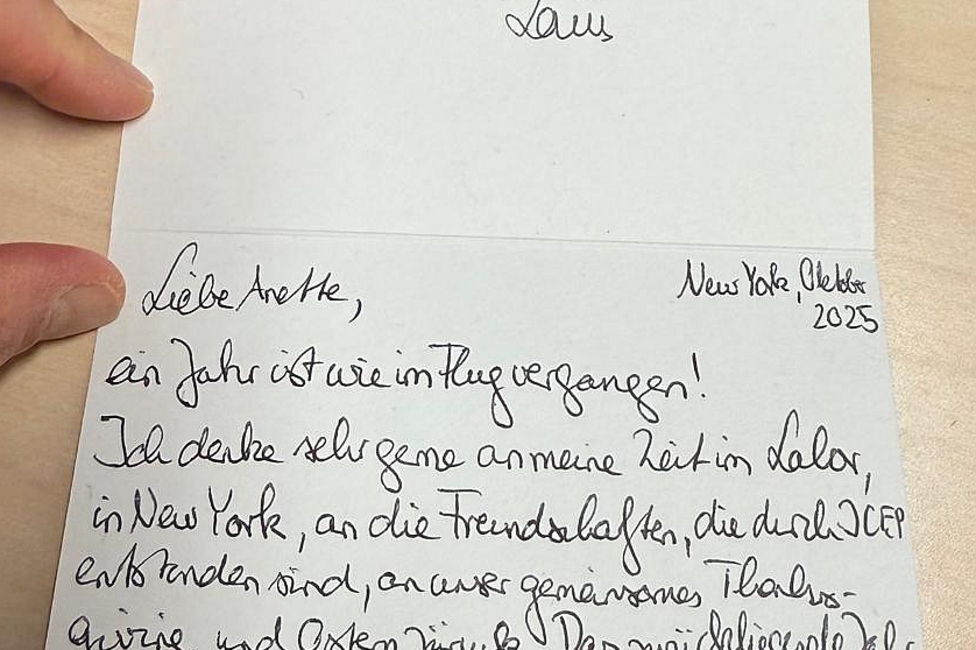 Liebe Anette,
New York, Oktober
2025
ein Jahr ist wie im Flug vergangen!
Ich denke sehr gerne an meine Zeit im Labor,
in New York, an die Freundschaften, die durch ICEP
entstanden sind, an unser gemeinsames Thanks-
giving und Ostern zurück. Das